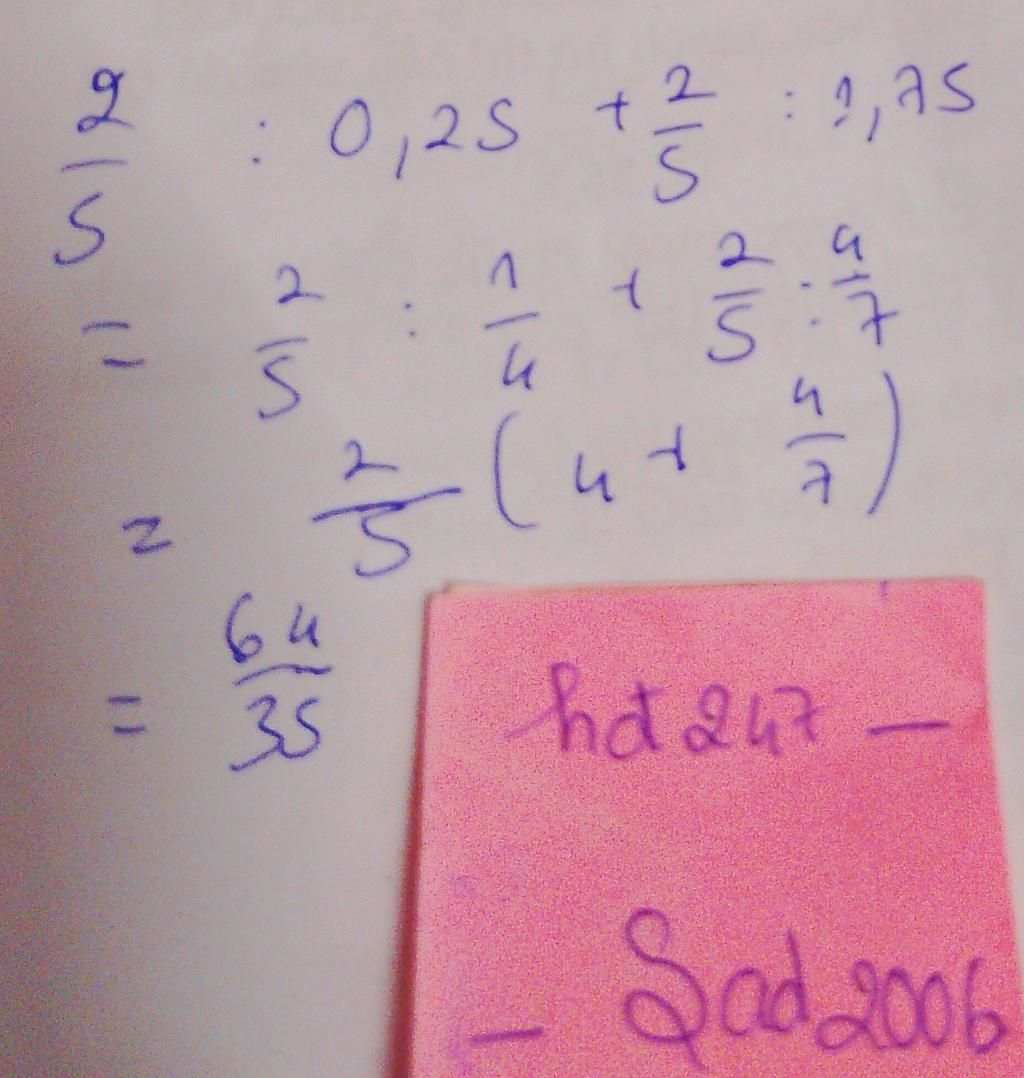 2/5 : 0,25 + 2/5 : 1,75
= 2/5 : 1/4 + 2/5 : 4/7
= 2/5 ( 4 + 4/7 )
= 64/35
hd247 —
— Sad2006